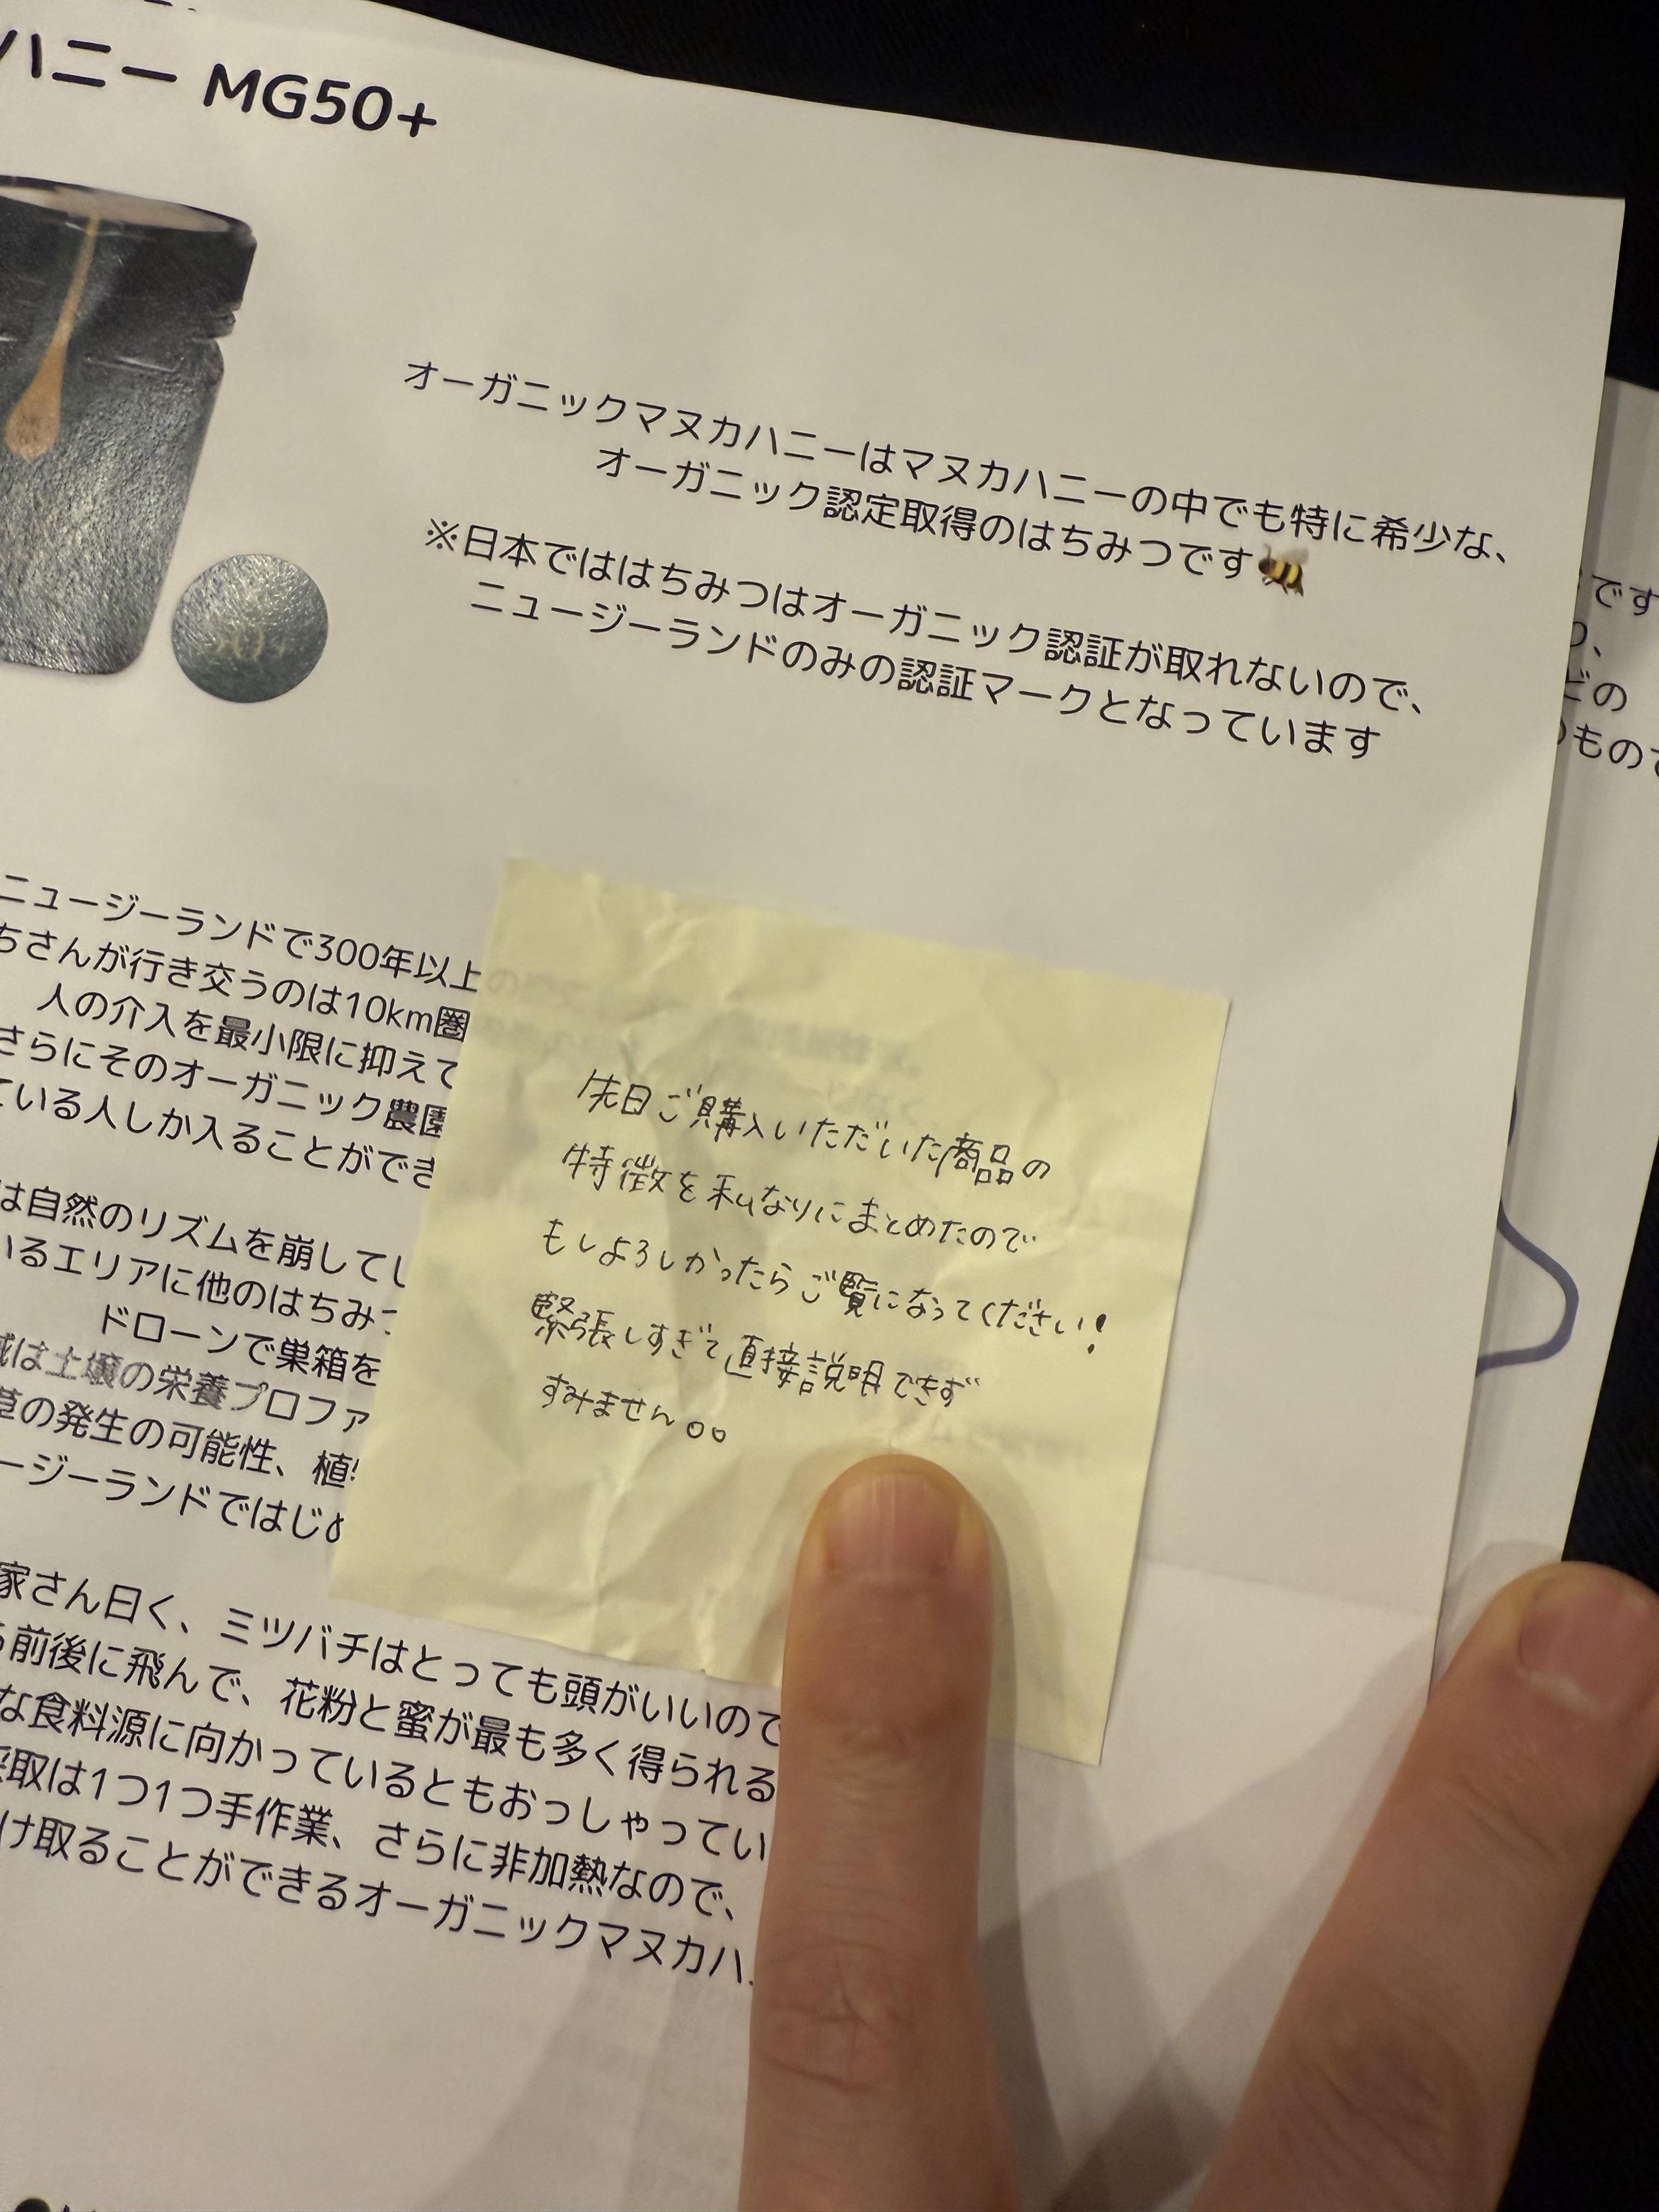 ハニー MG50+
オーガニックマヌカハニーはマヌカハニーの中でも特に希少な、
オーガニック認定取得のはちみつです🐝
※日本でははちみつはオーガニック認証が取れないので、
ニュージーランドのみの認証マークとなっています
です
どの
もので
ニュージーランドで300年以上
ちさんが行き交うのは10km圏
人の介入を最小限に抑えて
さらにそのオーガニック農園
ている人しか入ることができ
は自然のリズムを崩してし
いるエリアに他のはちみつ
ドローンで巣箱を
域は土壌の栄養プロファ
草の発生の可能性、植
ージーランドではじめ
先日ご購入いただいた商品の
特徴を私なりにまとめたので
もしよろしかったらご覧になってください!
緊張しすぎて直接説明できず
すみません。。
家さん曰く、ミツバチはとっても頭がいいので
る前後に飛んで、花粉と蜜が最も多く得られる
な食料源に向かっているともおっしゃってい
採取は1つ1つ手作業、さらに非加熱なので、
け取ることができるオーガニックマヌカハ